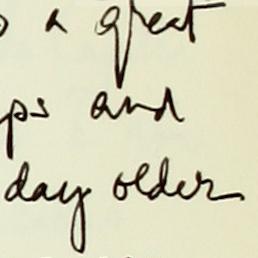 a great
and
day older